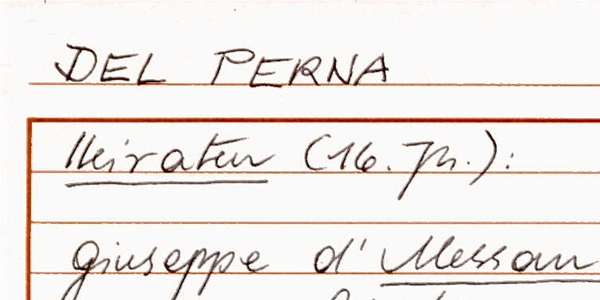 DEL PERNA
Heiraten (16. Jh.):
Giuseppe d'Alessan